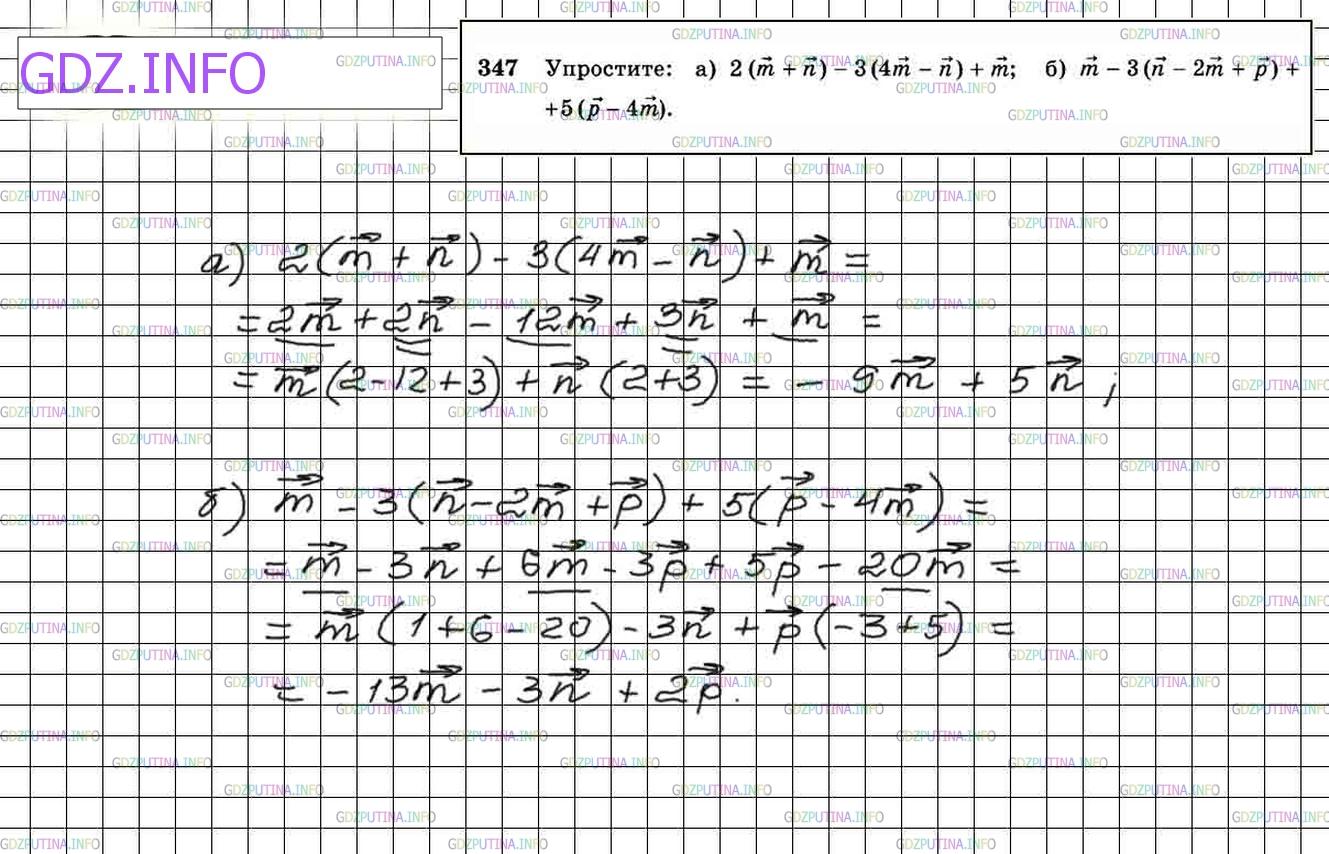 GDZ.INFO
347 Упростите: а) 2(m⃗ + n⃗) − 3(4m⃗ − n⃗) + m⃗; б) m⃗ − 3(n⃗ − 2m⃗ + p⃗) +
+5(p⃗ − 4m⃗).
а) 2(m⃗ + n⃗) − 3(4m⃗ − n⃗) + m⃗ =
= 2m⃗ + 2n⃗ − 12m⃗ + 3n⃗ + m⃗ =
= m⃗(2−12+3) + n⃗(2+3) = − 9m⃗ + 5n⃗;
б) m⃗ − 3(n⃗ − 2m⃗ + p⃗) + 5(p⃗ − 4m⃗) =
= m⃗ − 3n⃗ + 6m⃗ − 3p⃗ + 5p⃗ − 20m⃗ =
= m⃗(1+6−20) − 3n⃗ + p⃗(−3+5) =
= − 13m⃗ − 3n⃗ + 2p⃗.
GDZPUTINA.INFO